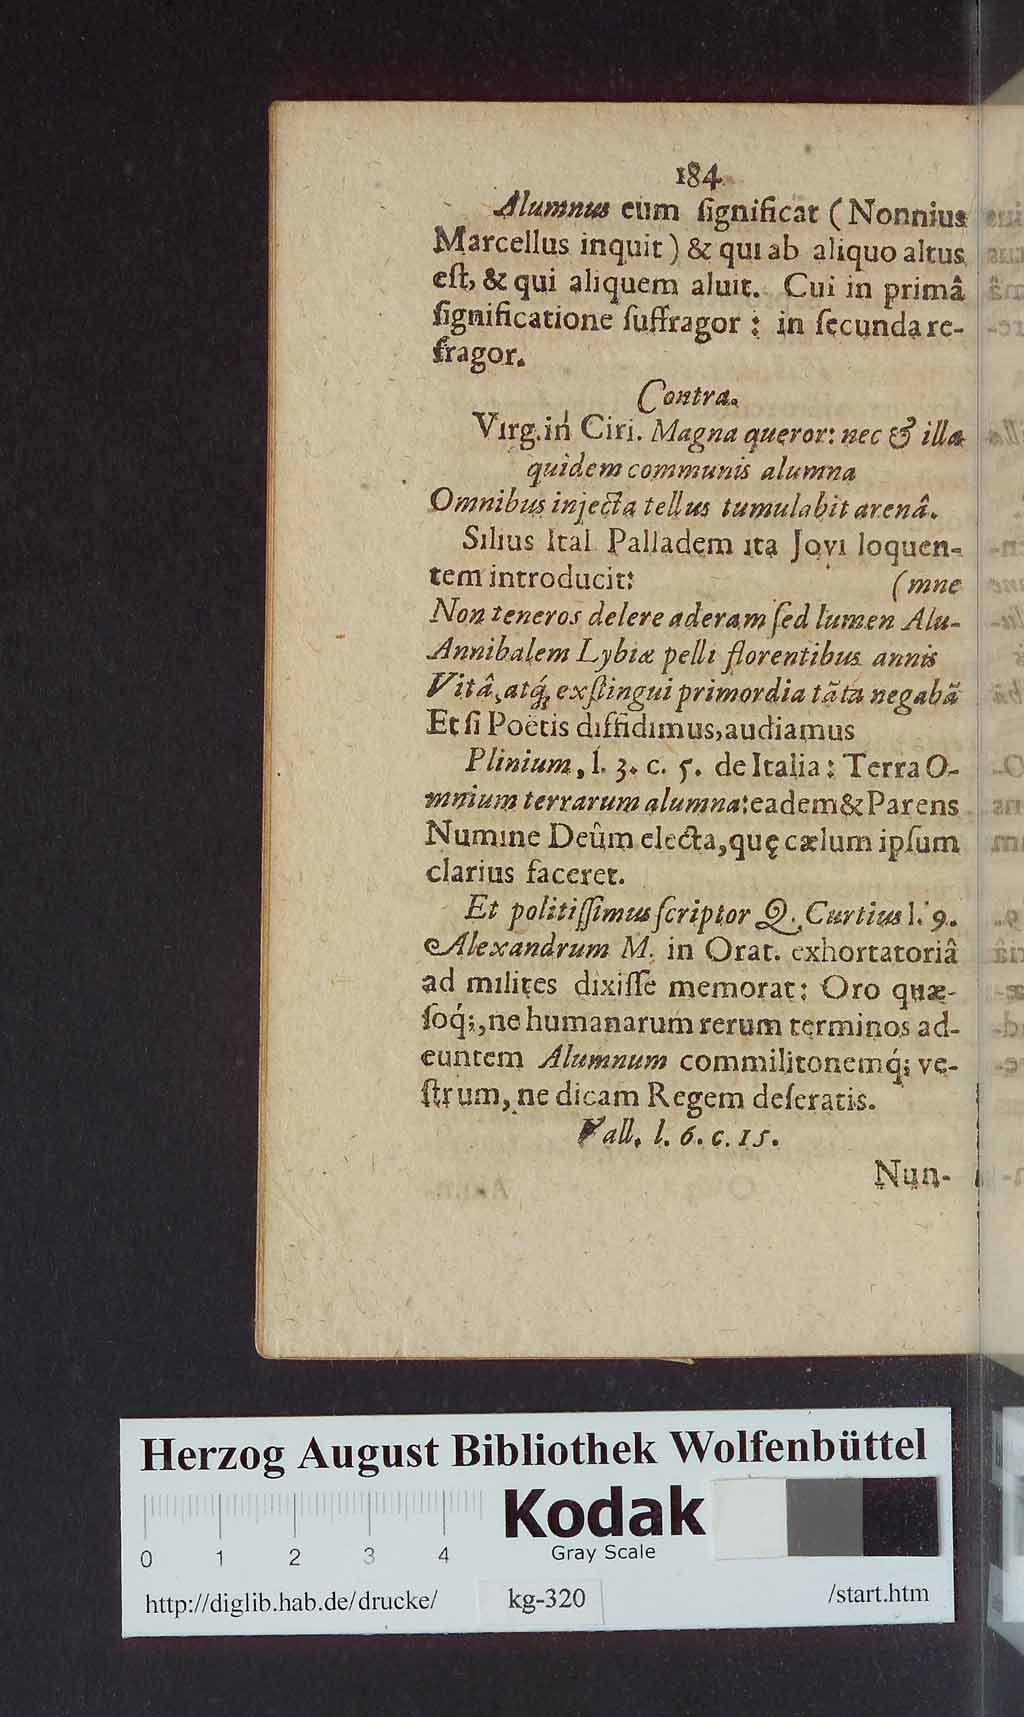 184
Alumnus eum ſignificat (Nonnius
Marcellus inquit) & qui ab aliquo altus
eſt, & qui aliquem aluit. Cui in primâ
ſignificatione ſuffragor : in ſecunda re-
fragor.
Contra.
Virg. in Ciri. Magna queror: nec & illa
quidem communis alumna
Omnibus injecta tellus tumulabit arenâ.
Silius Ital. Palladem ita Jovi loquen-
tem introducit: (mne
Non teneros delere aderam ſed lumen Alu-
Annibalem Lybiæ pelli florentibus annis
Vitâ, atq́; exſtingui primordia tãta negabã
Et ſi Poëtis diffidimus, audiamus
Plinium, l. 3. c. 5. de Italia: Terra O-
mnium terrarum alumna: eadem & Parens
Numine Deûm electa, quę cælum ipſum
clarius faceret.
Et politiſſimus ſcriptor Q. Curtius l. 9.
Alexandrum M. in Orat. exhortatoriâ
ad milites dixiſſe memorat: Oro quæ-
ſoq́;, ne humanarum rerum terminos ad-
euntem Alumnum commilitonemq́; ve-
ſtrum, ne dicam Regem deſeratis.
Vall. l. 6. c. 15.
Nun-
Herzog August Bibliothek Wolfenbüttel
Kodak
Gray Scale
0 1 2 3 4
http://diglib.hab.de/drucke/ kg-320 /start.htm